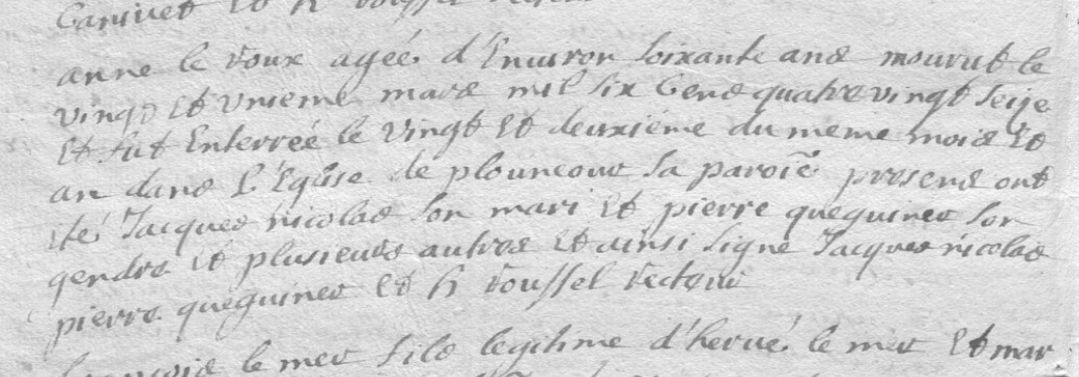 et h roussel
anne le roux agée d'Environ soixante ans mourut le
vingt Et Unieme mars mil six Cens quatre vingt seize
Et fut Enterrée le vingt Et deuxième du meme mois Et
an dans l'Eglise de plouneour sa paroïe presens ont
eté Jacques nicolas son mari Et pierre queguiner son
gendre Et plusieurs autres Et ainsi signé Jacques nicolas
pierre queguiner Et h roussel recteur
françois le mer fils legitime d'hervé le mer Et mar